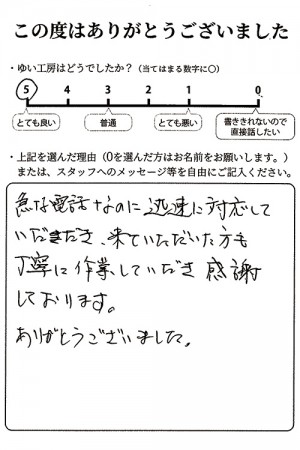 この度はありがとうございました
・ゆい工房はどうでしたか？（当てはまる数字に○）
5 4 3 2 1 0
とても良い 普通 とても悪い 書ききれないので直接話したい
・上記を選んだ理由（0を選んだ方はお名前をお願いします。）
または、スタッフへのメッセージ等を自由にご記入ください。
急な電話なのに迅速に対応して
いただき、来ていただいた方も
丁寧に作業していだき感謝
しております。
ありがとうございました。